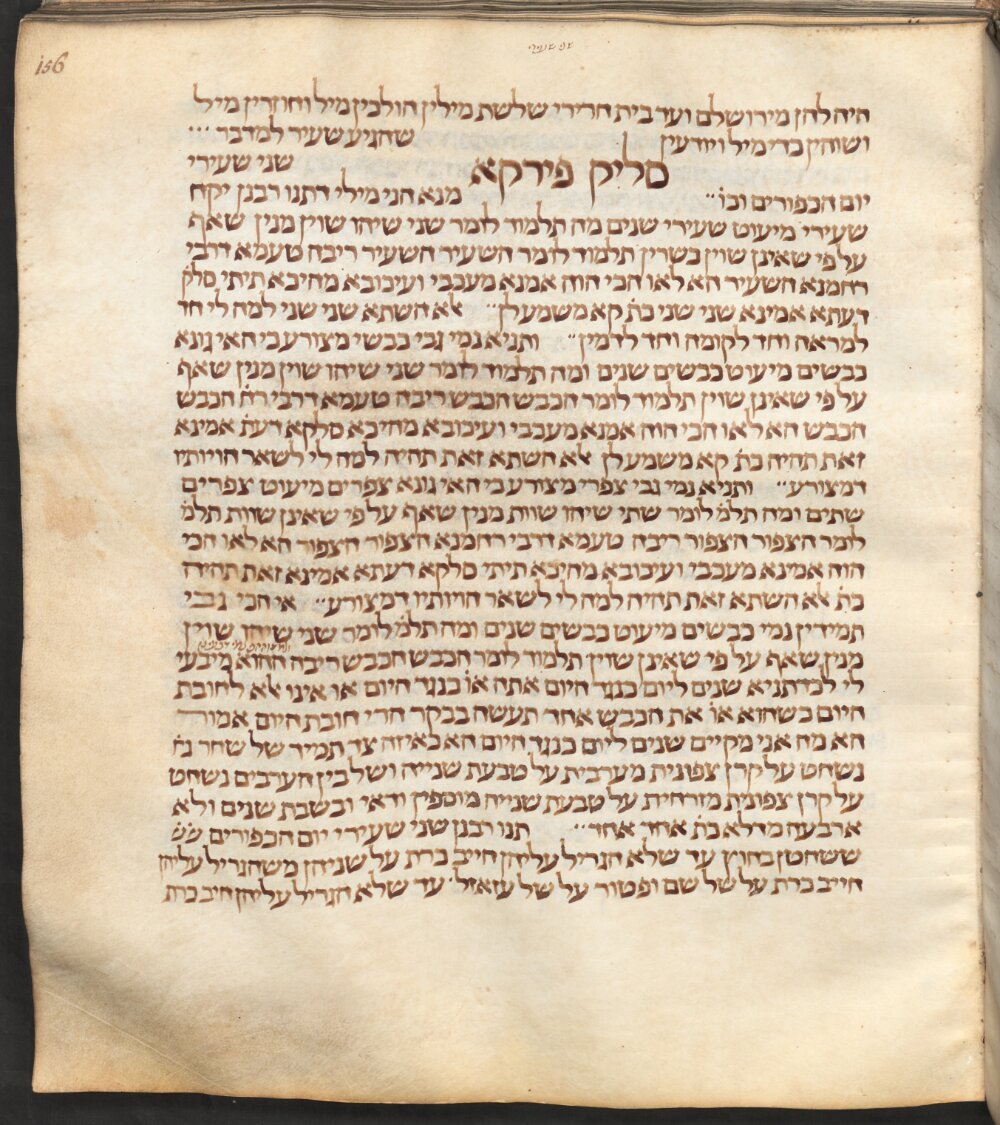 שני שעירי
156
היה להן מירושלם ועד בית חרירי שלשת מילין הולכין מיל וחוזרין מיל
ושוהין כדי מיל ויודעין שהגיע שעיר למדבר ׳׳׳
סליק פירקא שני שעירי
יום הכפורים וכו׳׳ מנא הני מילי דתנו רבנן יקח
שעירי מיעוט שעירי שנים מה תלמוד לומר שני שיהו שוין מנין שאף
על פי שאינן שוין כשרין תלמוד לומר השעיר השעיר ריבה טעמא דרבי
רחמנא השעיר הא לאו הכי הוה אמנא מעכבי ועיכובא מהיכא תיתי סלק׳
דעתא אמינא שני שני כת׳ קא משמע לן׳׳ אלא השתא שני שני למה לי חד
למראה וחד לקומה וחד לדמין׳׳ ותניא נמי גבי כבשי מצורע כי האי גונא
כבשים מיעוט כבשים שנים ומה תלמוד לומר שני שיהו שוין מנין שאף
על פי שאינן שוין תלמוד לומר הכבש הכבש ריבה טעמא דרבי רח׳ הכבש
הכבש הא לאו הכי הוה אמנא מעכבי ועיכובא מהיכא סלקא דעת׳ אמינא
זאת תהיה כת׳ קא משמע לן אלא השתא זאת תהיה למה לי לשאר הויותיו
דמצורע׳׳ ותניא נמי גבי צפרי מצורע כי האי גונא צפרים מיעוט צפרים
שתים ומה תלמ׳ לומר שתי שיהו שוות מנין שאף על פי שאינן שוות תלמ׳
לומר הצפור הצפור ריבה טעמא דרבי רחמנא הצפור הצפור הא לאו הכי
הוה אמינא מעכבי ועיכובא מהיכא תיתי סלקא דעתא אמינא זאת תהיה
כת׳ אלא השתא זאת תהיה למה לי לשאר הויותיו דמצורע׳׳ אי הכי גבי
תמידין נמי כבשים מיעוט כבשים שנים ומה תלמ׳ לומר שני שיהו שוין
מנין שאף על פי שאינן שוין תלמוד לומר הכבש הכבש ריבה ההוא מיבעי
לי לכדתניא שנים ליום כנגד היום אתה או׳ כנגד היום או אינו אלא לחובת
היום כשהוא או׳ את הכבש אחד תעשה בבקר הרי חובת היום אמור
הא מה אני מקיים שנים ליום כנגד היום הא כאיזה צד תמיד של שחר נ׳
נשחט על קרן צפונית מערבית על טבעת שנייה ושל בין הערבים נשחט
על קרן צפונית מזרחית על טבעת שנייה מוספין ודאי ובשבת שנים ולא
ארבעה מדלא כת׳ אחד אחד׳׳ תנו רבנן שני שעירי יום הכפורים
ששחטן בחוץ עד שלא הגריל עליהן חייב כרת על שניהן משהגריל עליהן
חייב כרת על של שם ופטור על של עזאזל׳ עד שלא הגריל עליהן חייב כרת